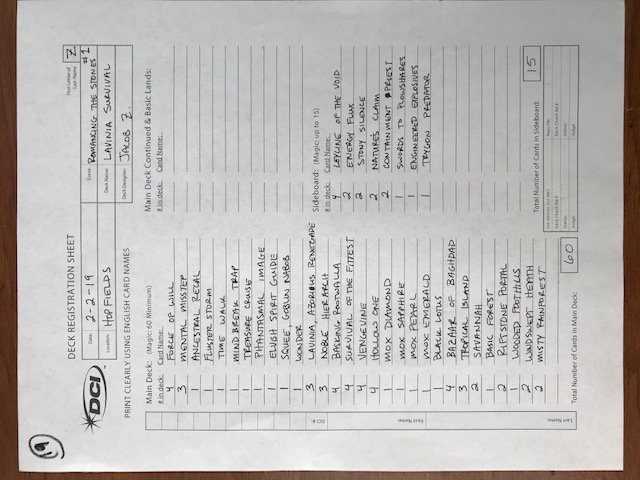 19
DECK REGISTRATION SHEET
First Letter of Last Name Z
DCI
Date: 2-2-19
Event: ROMANCING THE STONES #1
Location: HOP FIELDS
Deck Name: LAVINIA SURVIVAL
Deck Designer: JACOB Z.
PRINT CLEARLY USING ENGLISH CARD NAMES
Main Deck: (Magic: 60 Minimum)
# in deck: Card Name:
4 FORCE OF WILL
3 MENTAL MISSTEP
1 ANCESTRAL RECAL
1 FLUSTER STORM
1 TIME WALK
1 MIND BREAK TRAP
1 TREASURE CRUISE
1 PHANTASMAL IMAGE
1 ELVISH SPIRIT GUIDE
1 SQUEE, GOBLIN NABOB
1 WONDER
3 LAVINIA, AZORIOUS RENEGADE
3 NOBLE HIERARCH
4 BASKING ROOTWALLA
4 SURVIVAL OF THE FITTEST
4 VENGEVINE
4 HOLLOW ONE
1 MOX DIAMOND
1 MOX SAPPHIRE
1 MOX PEARL
1 MOX EMERALD
1 BLACK LOTUS
4 BAZAAR OF BAGHDAD
3 TROPICAL ISLAND
2 SAVANNAH
1 BASIC FOREST
2 RIPTSTONE PORTAL
1 WOODED FOOTHILLS
2 WINDSWEPT HEATH
2 MISTY RAINFOREST
Total Number of Cards in Main Deck: 60
Main Deck Continued & Basic Lands:
# in deck: Card Name:
Sideboard: (Magic: up to 15)
# in deck: Card Name:
4 LEYLINE OF THE VOID
2 ENERGY FLUX
2 STONY SILENCE
2 NATURE'S CLAIM
2 CONTAINMENT PRIEST
1 SWORDS TO PLOWSHARES
1 ENGINEERED EXPLOSIVES
1 TRYGON PREDATOR
Total Number of Cards in Sideboard: 15
FOR OFFICIAL USE ONLY
Main/SB:
Deck Check Rd #:
Deck Check Rd #:
Status:
Status:
Judge:
Judge:
DCI #:
First Name:
Last Name: